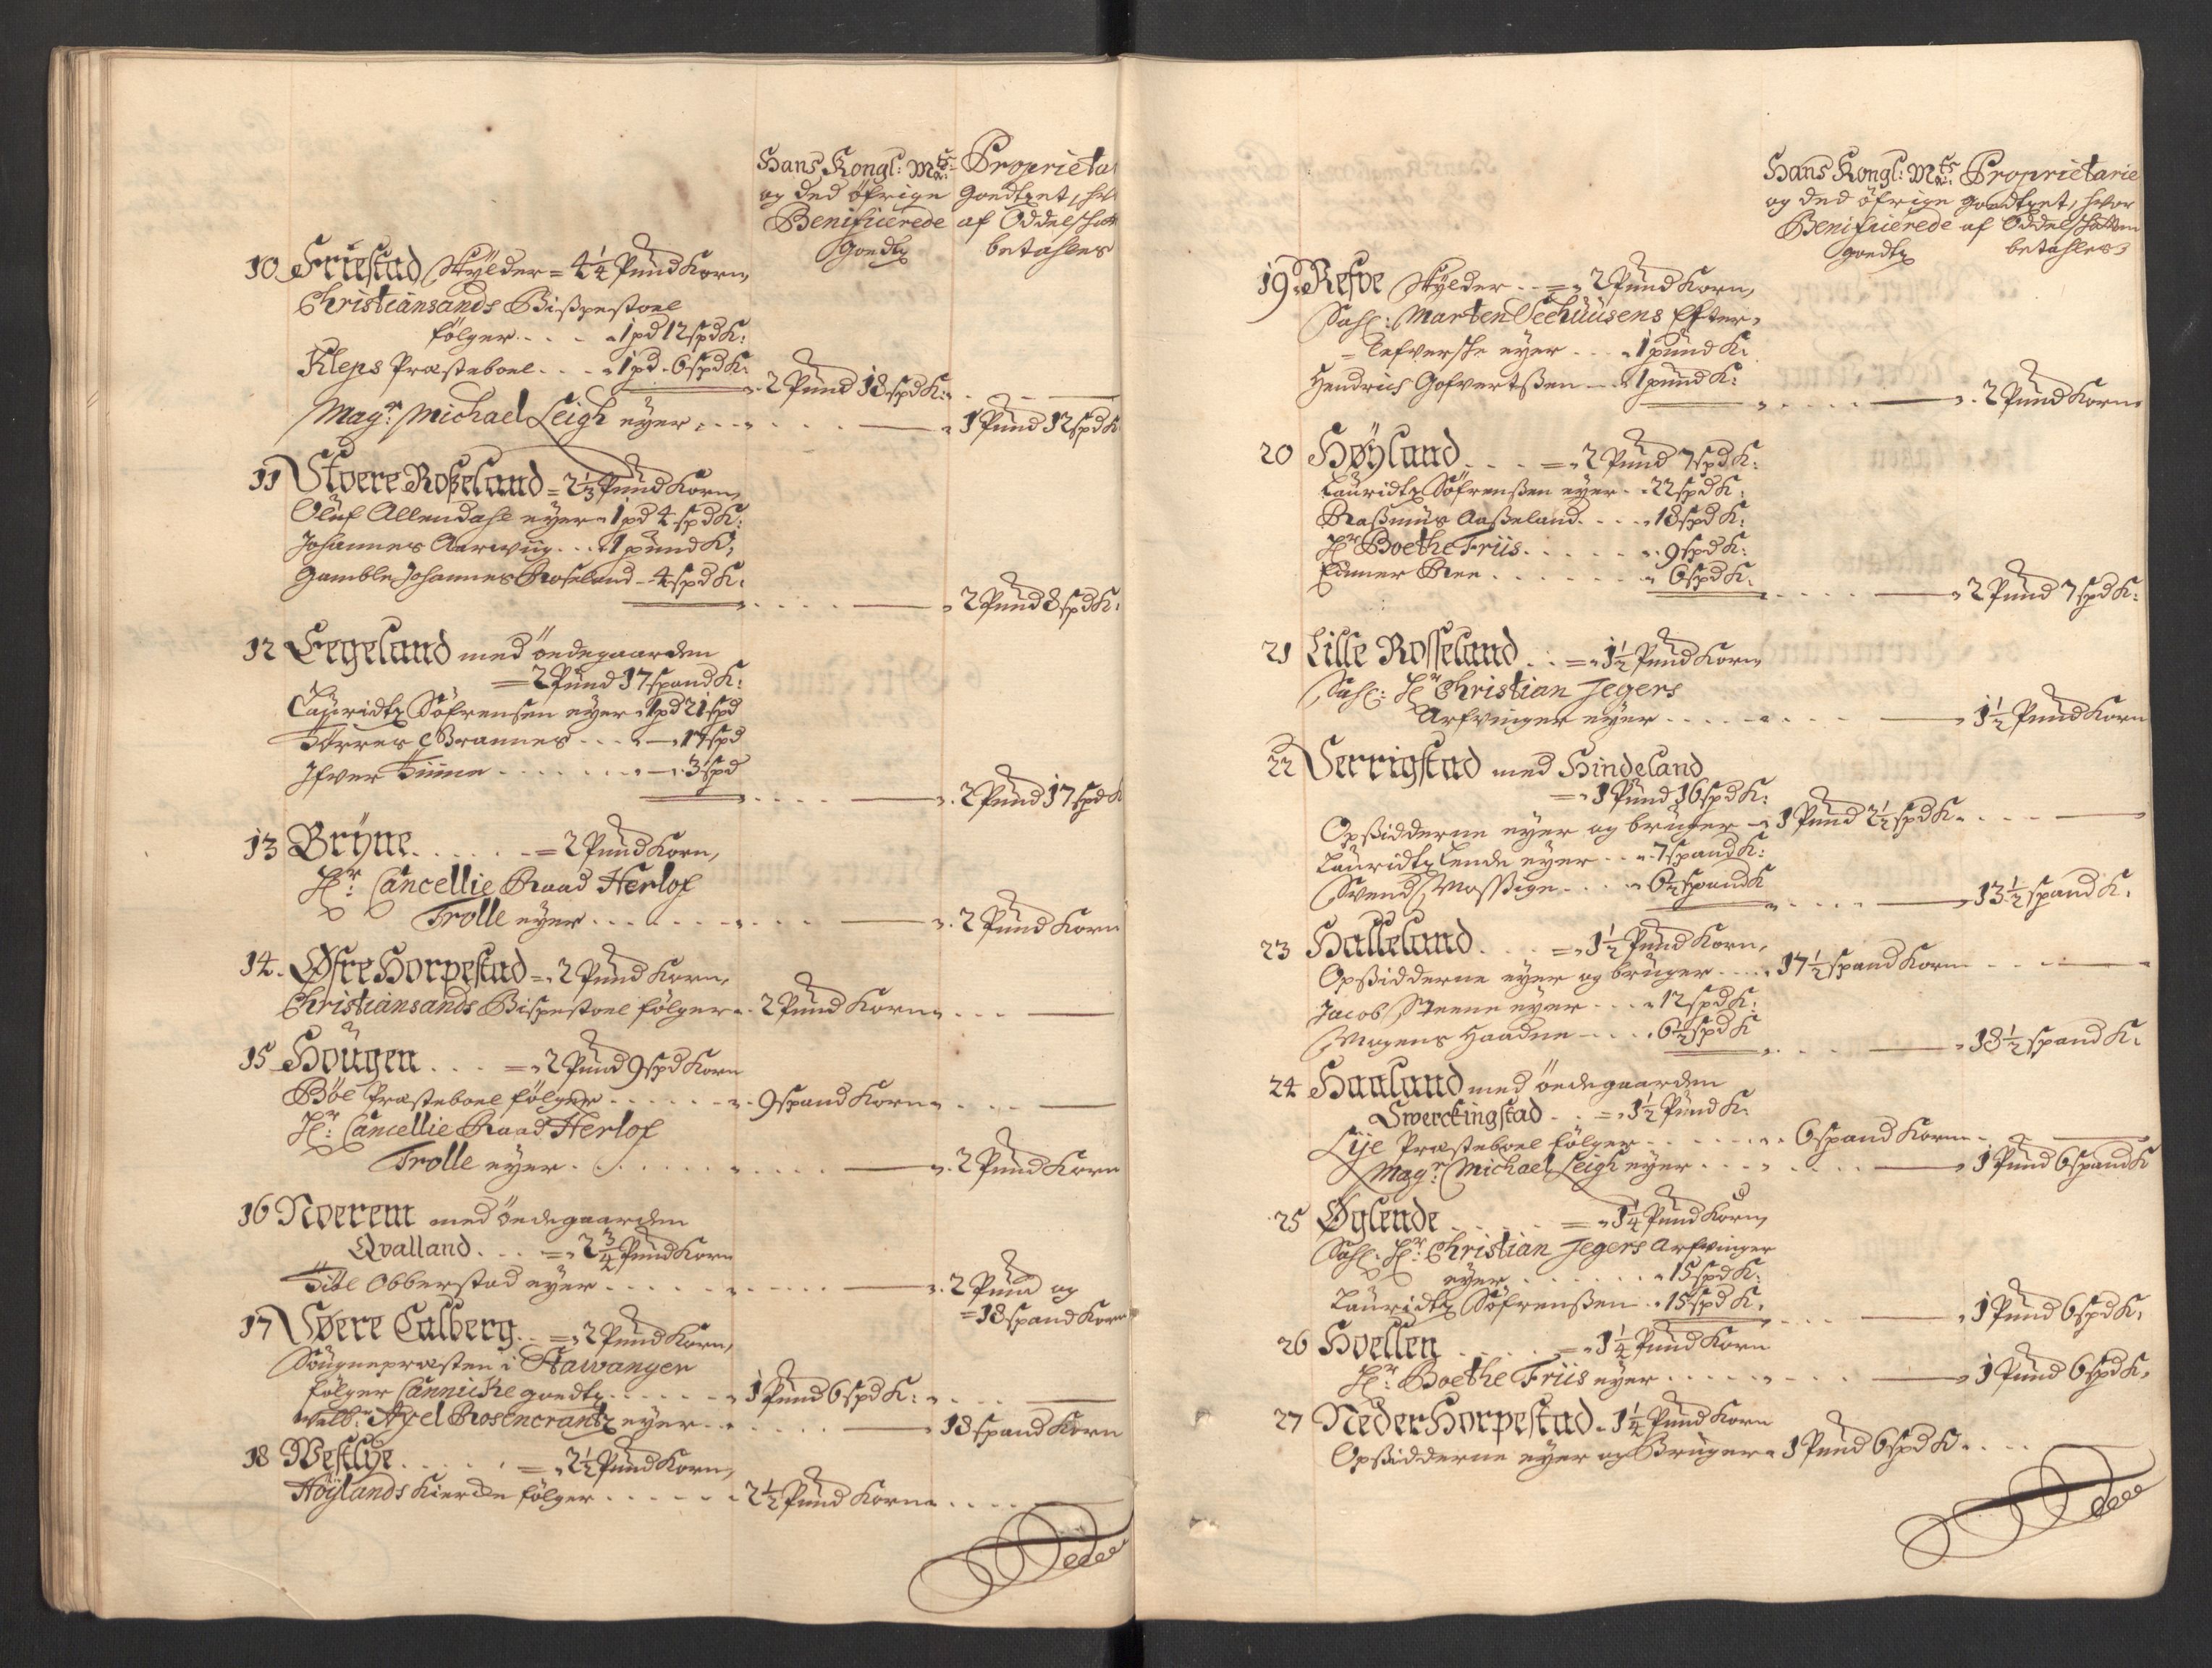 Hans Kongl: Mtz: Proprietar
og ded öfrige Goedtzet, hvor
Benificerede af Oddelschatt
Goedtz betahles
10 Friestad Skylder = 4 1/4 Pund Korn,
Christiansands Bispestoel
følger . . . . 1 pd 12 spd K:
Kleps Præsteboel . . . 1 pd. 6 spd K: 2 Pund 18 spd K: . . .
Magr: Michael Leigh eyer . . . . . . 1 Pund 12 spd K
11 Stoere Rosseland = 2 1/3 Pund Korn,
Oluf Allendahl eyer 1 pd 4 spd K:
Johannes Aarwiig . . . 1 pund K,
Gamble Johannes Roseland - 4 spd K:
. . . . 2 Pund 8 spd K:
12 Eegeland med ödegaarden
= 2 Pund 17 spand K:
Lauridtz Söfrensen eyer 1 pd 21 spd
Törres Brannes . . . 17 spd
Ifver Tiime . . . . . 3 spd
. . . . 2 Pund 17 spd K
13 Bryne . . . . . = 2 Pund Korn,
Hr: Cancellie Raad Herlof
Trolle eyer . . . . . . 2 Pund Korn
14. Øfre Horpestad = 2 Pund Korn,
Christiansands Bispestoel følger . 2 Pund Korn . . .
15 Hougen . . . = 2 Pund 9 spd Korn
Böe Præsteboel følger . . . . . 9 spand Korn . . .
Hr: Cancellie Raad Herlof
Trolle eyer . . . . . . 2 Pund Korn
16 Noerem med ödegaarden
Qvalland . . . = 2 3/4 Pund Korn
Obberstad eyer . . . . . . 2 Pund og
= 18 spand Korn
17 Søere Calberg . . = 2 Pund Korn,
Sougnepræsten i Stawanger
følger Cannicke goedtz . . . . . 1 Pund 6 spd K: . . .
Welb: Axel Rosencrantz eyer . . . . . 18 spand Korn
18 Westlye . . . . . = 2 1/2 Pund Korn,
Höylands Kiercke følger . . . . . 2 1/2 Pund Korn . . . .
Hans Kongl: Mtz: Proprietarie
og ded öfrige goedtzet, hvor
Benificerede af Oddelschatten
goedtz betahles
19. Refve Skylder . . = 2 Pund Korn,
Sahl: Marten Seehuusens Efter-
= lefverske eyer . . . 1 pund K:
Hendrich Gofvertsen . . 1 pund K:
. . . . 2 Pund Korn
20 Høyland . . . = 2 Pund 7 spd K:
Lauridtz Söfrenssen eyer . . 22 spd K:
Rasmus Aasseland . . . . 18 spd K:
Hr Boethe Friis . . . . . 9 spd K:
Ree . . . . . . 6 spd K:
. . . . 2 Pund 7 spd K:
21 Lille Rosseland . . = 1 1/2 Pund Korn,
Sahl: Hr Christian Jegers
Arfvinger eyer . . . . . . . 1 1/2 Pund Korn
22 Serrigstad med Hindeland
= 1 Pund 16 spd K:
Opsidderne eyer og bruger - 1 Pund 2 1/2 spd K . . . .
Lauridtz Lende eyer . . 7 spand K:
Svend Mossige . . . . 6 1/2 spand K
. . . . 13 1/2 spand K.
23 Halleland . . . = 1 1/2 Pund Korn,
Opsidderne eyer og bruger . . . 17 1/2 spand Korn . . .
Jacob Steene eyer . . . 12 spd K:
Mogens Haadne . . . . 6 1/2 spd K
. . . . 18 1/2 spand K:
24 Haaland med ödegaarden
Swerckingstad . . = 1 1/2 Pund K:
Lye Præsteboel følger . . . . . 6 spand Korn . . .
Magr: Michael Leigh eyer . . . . . 1 Pund 6 spand K
25 Øglende . . . . = 1 1/4 Pund Korn,
Sahl: Hr: Christian Jegers Arfvinger
eyer . . . . . . . 15 spd K:
Lauridtz Söfrenssen . . 15 spd K.
. . . . 1 Pund 6 spd K,
26 Hoellen . . . . = 1 1/4 Pund Korn
Hr: Boethe Friis eyer . . . . . . 1 Pund 6 spd K,
27 Neder Horpestad . 1 1/4 Pund Korn
Opsidderne eyer og Bruger . 1 Pund 6 spd K . . . .